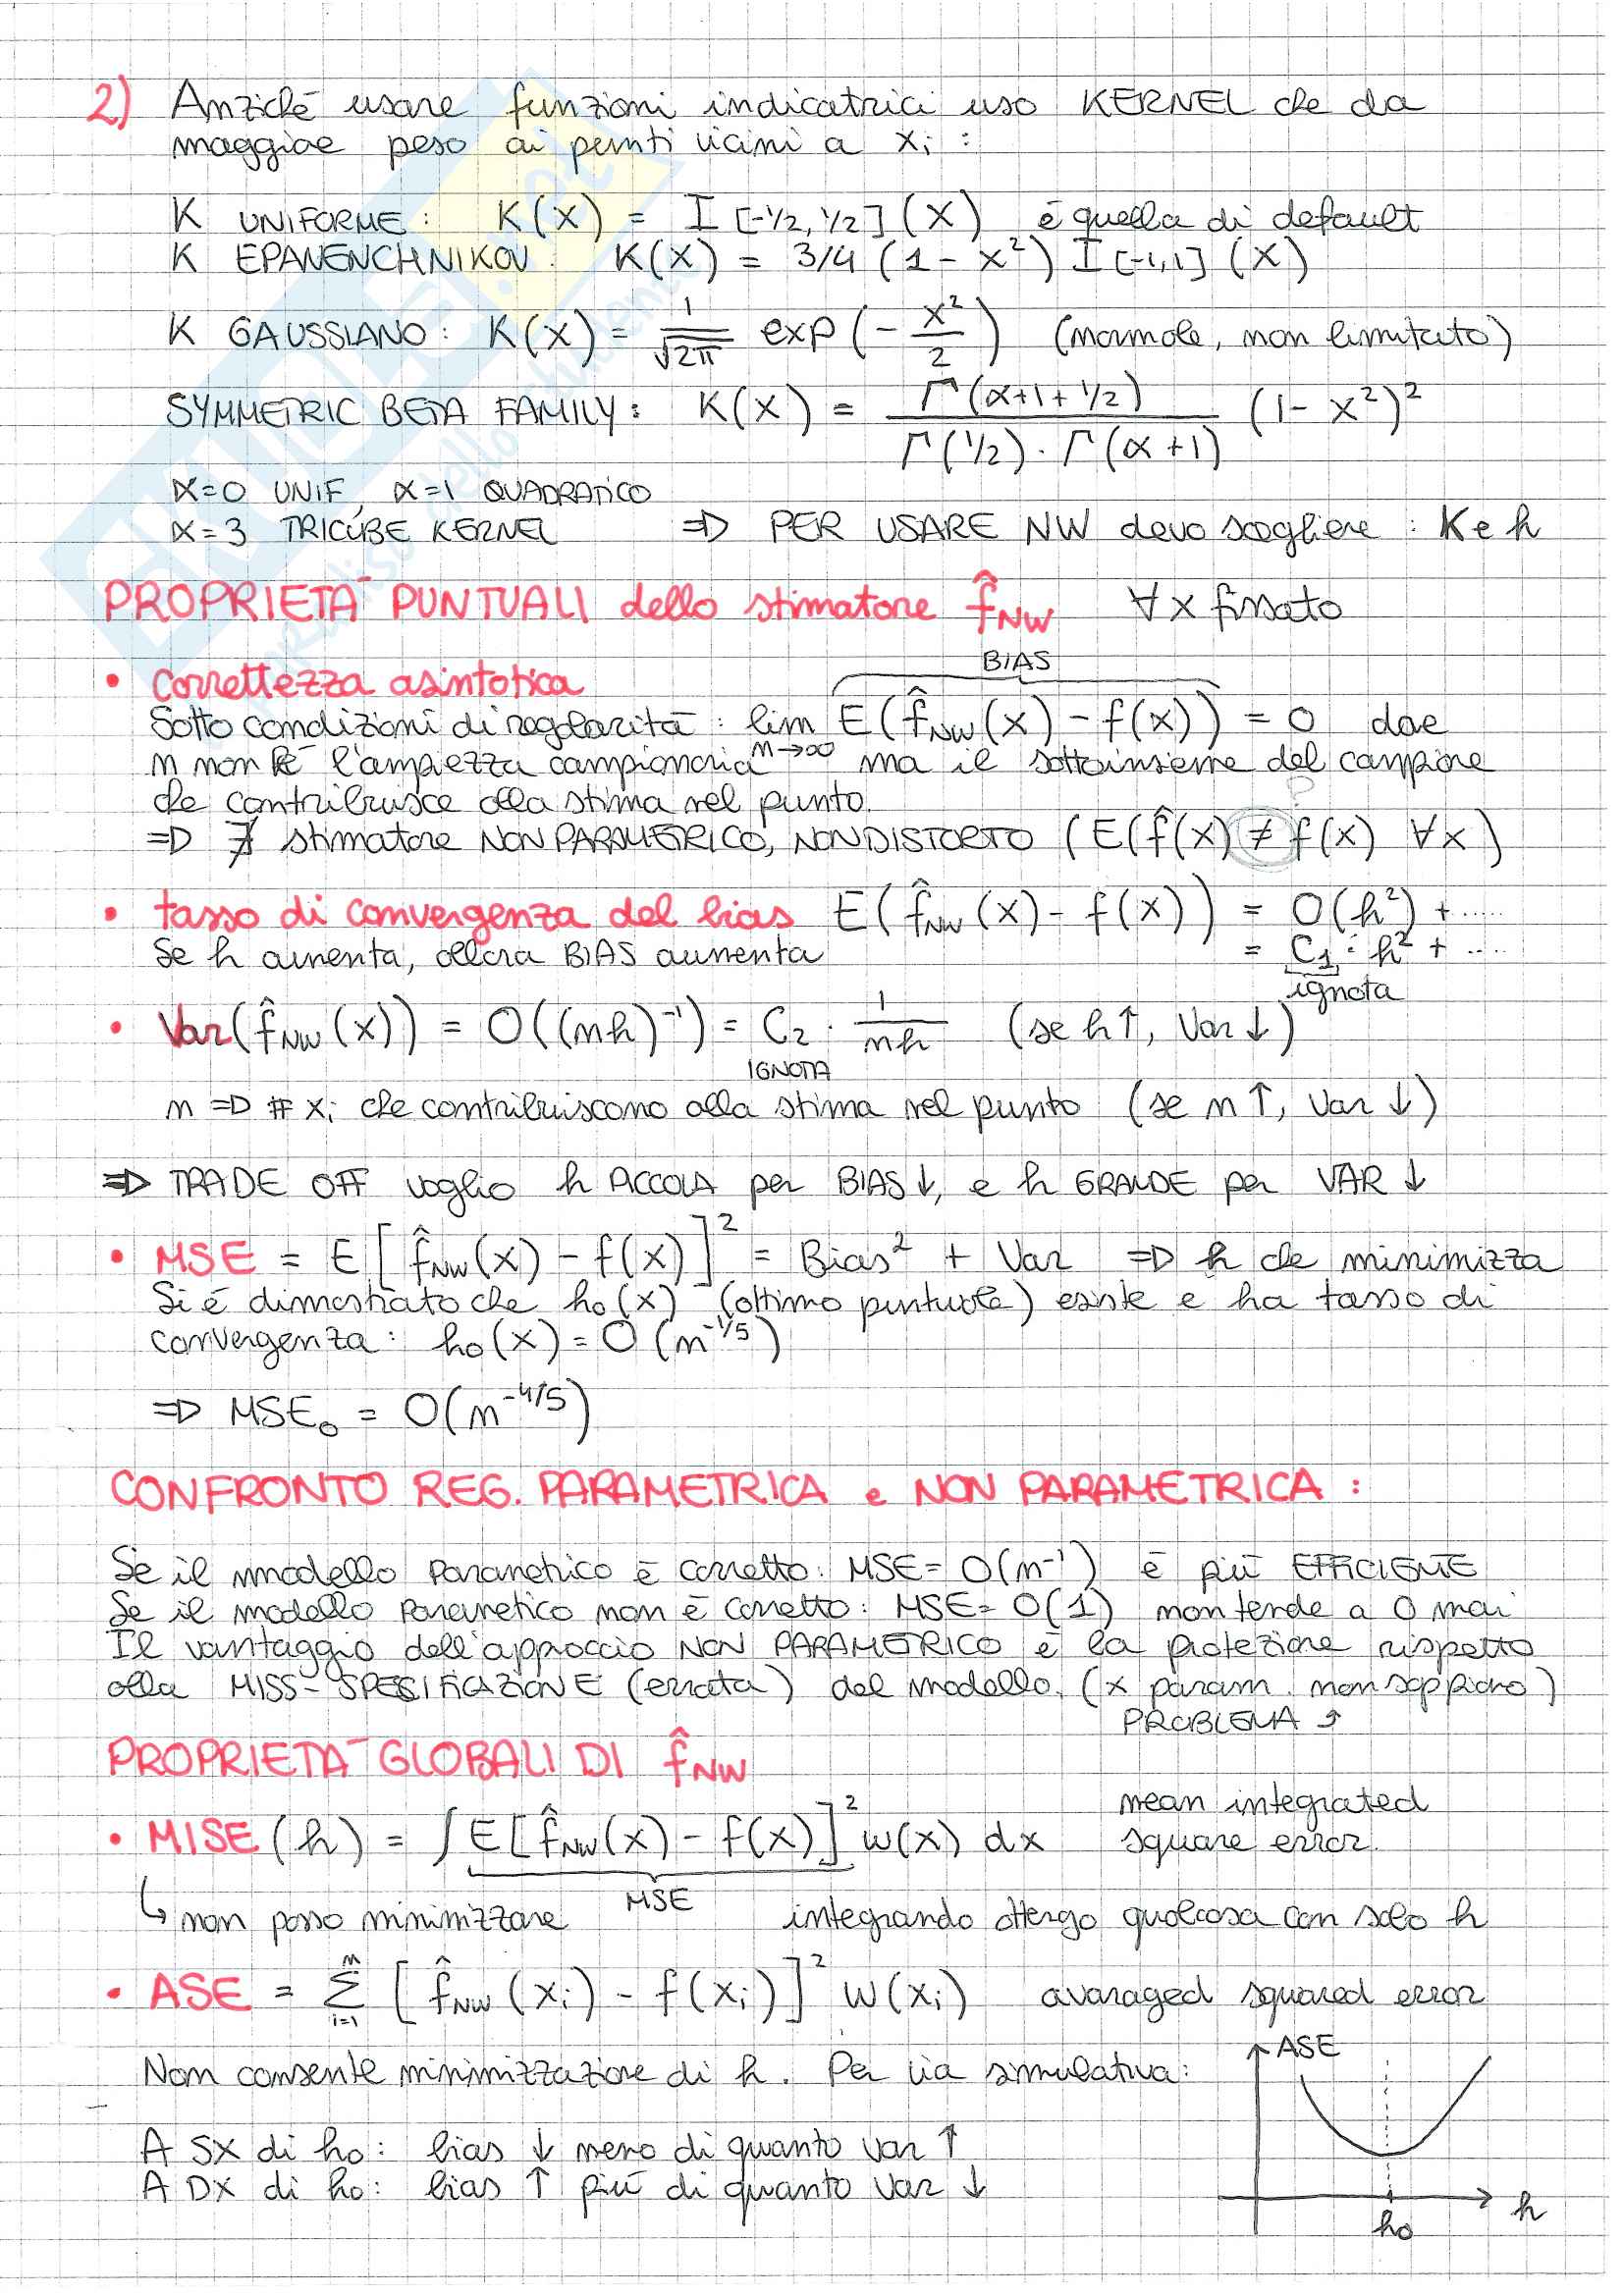 2) Anziché usare funzioni indicatrici uso KERNEL che da
maggiore peso ai punti vicini a xi :
K UNIFORME : K(X) = I [-1/2, 1/2] (X) é quella di default
K EPANENCHNIKOV : K(X) = 3/4 (1 - x²) I [-1,1] (X)
K GAUSSIANO : K(X) = 1/√2π exp (- x²/2) (normale, non limitato)
SYMMETRIC BETA FAMILY : K(X) = Γ(α+1+1/2) / Γ(1/2) · Γ(α+1) (1- x²)²
α=0 UNIF, α=1 QUADRATICO
α=3 TRICUBE KERNEL ⇒ PER USARE NW devo scegliere : K e h
PROPRIETÀ PUNTUALI dello stimatore f̂NW ∀ x fissato
BIAS
• correttezza asintotica
Sotto condizioni di regolarità : lim n→∞ E(f̂NW(x) - f(x)) = 0 dove
n non è l'ampiezza campionaria ma il sottoinsieme del campione
che contribuisce alla stima nel punto.
⇒ ∄ stimatore NON PARAMETRICO, NON DISTORTO (E(f̂(x) ≠ f(x) ∀x)
• tasso di convergenza del bias E(f̂NW(x) - f(x)) = O(h²) + .....
Se h aumenta, allora BIAS aumenta = C1 · h² + ....
ignota
• Var(f̂NW(x)) = O((nh)⁻¹) = C2 · 1/nh (se h↑, Var↓)
IGNOTA
n ⇒ # xi che contribuiscono alla stima nel punto (se n↑, Var↓)
⇒ TRADE OFF voglio h PICCOLA per BIAS↓, e h GRANDE per VAR↓
• MSE = E[f̂NW(x) - f(x)]² = Bias² + Var ⇒ h che minimizza
Si é dimostrato che h0(x) (ottimo puntuale) esiste e ha tasso di
convergenza : h0(x) = O(n^-1/5)
⇒ MSE0 = O(n^-4/5)
CONFRONTO REG. PARAMETRICA e NON PARAMETRICA :
Se il modello parametrico è corretto : MSE = O(n⁻¹) è più EFFICIENTE
Se il modello parametico non è corretto : MSE = O(1) non tende a 0 mai
Il vantaggio dell'approccio NON PARAMETRICO è la protezione rispetto
alla MISS-SPECIFICAZIONE (errata) del modello. (x param. non sappiamo)
PROBLEMA ↗
PROPRIETÀ GLOBALI DI f̂NW
• MISE(h) = ∫E[f̂NW(x) - f(x)]² w(x) dx mean integrated
square error.
MSE
↳ non posso minimizzare integrando ottengo qualcosa con solo h
• ASE = Σ i=1 n [f̂NW(xi) - f(xi)]² W(xi) avaraged squared error
Non consente minimizzazione di h. Per via simulativa :
ASE
A SX di h0 : bias ↓ meno di quanto var ↑
A DX di h0 : bias ↑ più di quanto var ↓
h
h0